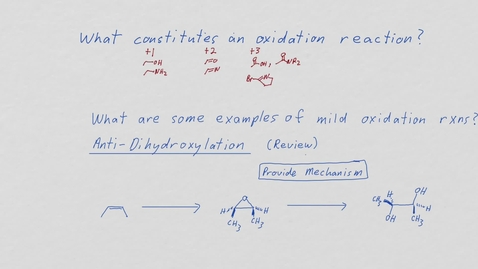 What constitutes an oxidation reaction?
+1 +2 +3
OH O OH, NH2
NH2 N
Br
What are some examples of mild oxidation rxns?
Anti-Dihydroxylation (Review)
Provide Mechanism
O OH
H H CH3 H H
CH3 CH3 OH CH3